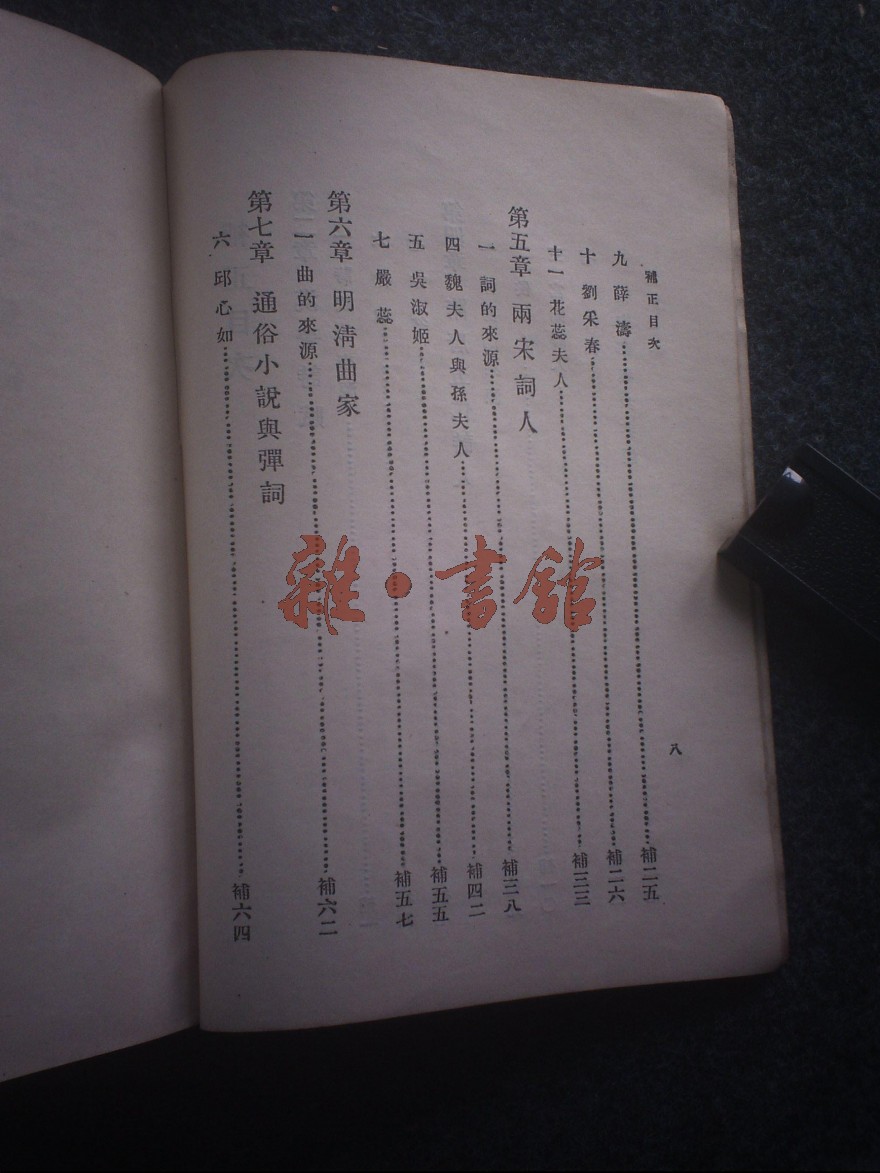 補正目次
八
九 薛濤 補二五
十 劉采春 補二六
十一 花蕊夫人 補三三
第五章 兩宋詞人
一 詞的來源 補三八
四 魏夫人與孫夫人 補四二
五 吳淑姬 補五五
七 嚴蕊 補五七
第六章 明清曲家
一 曲的來源 補六二
第七章 通俗小說與彈詞
六 邱心如 補六四
雜·書館